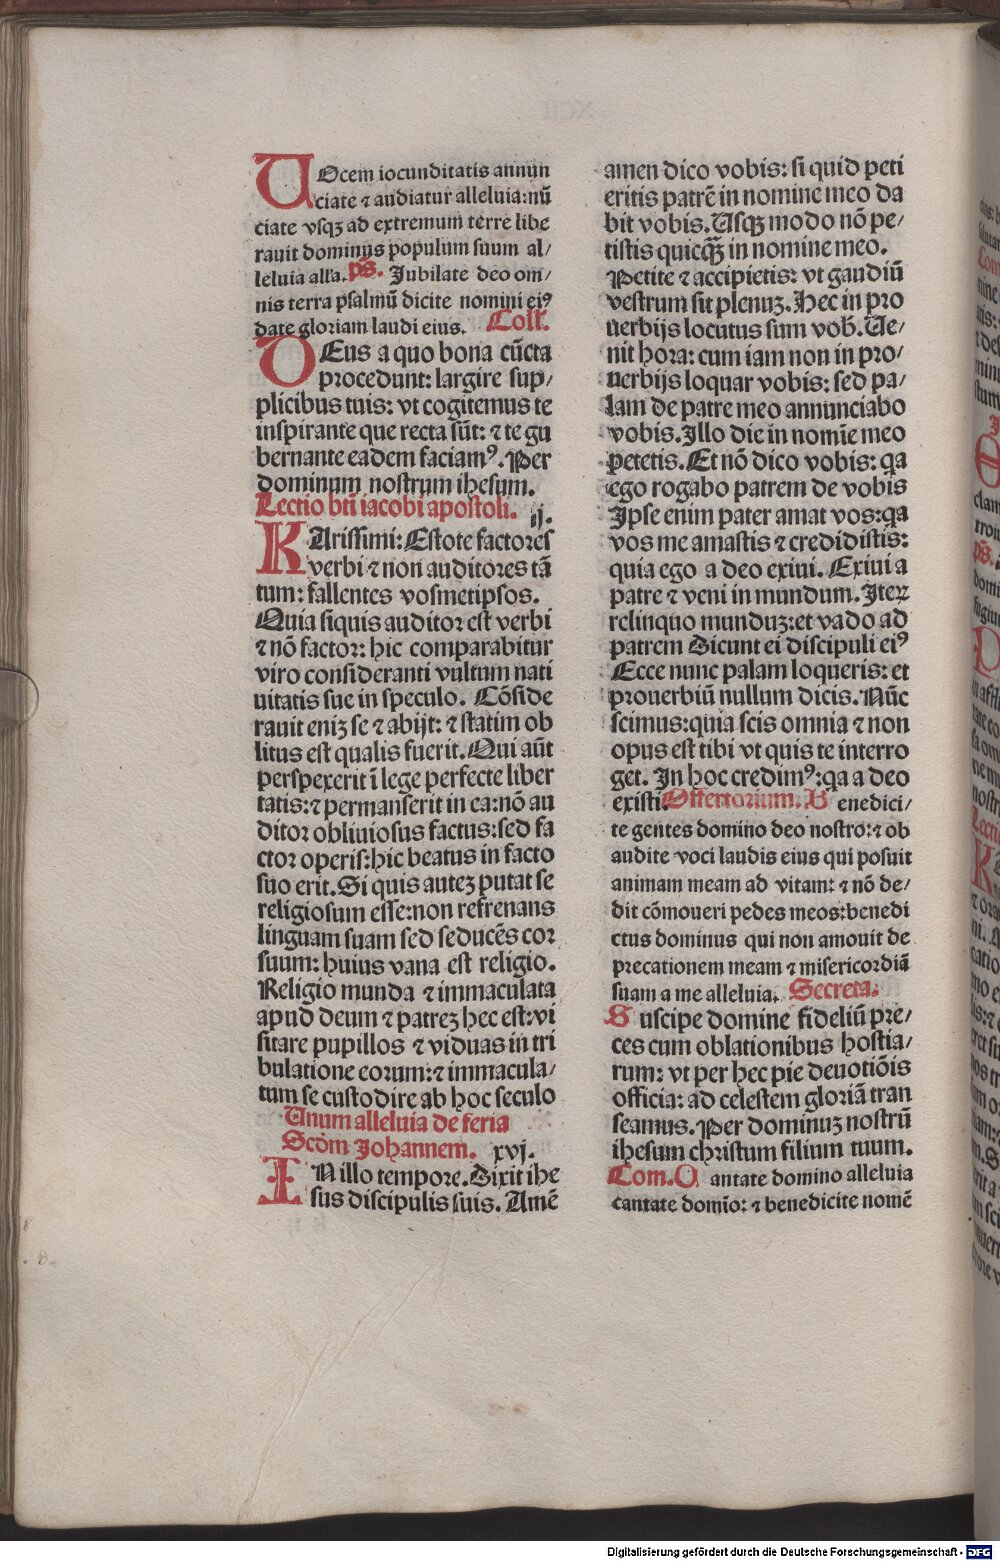 UOcem iocunditatis annun
ciate ⁊ audiatur alleluia:nū
ciate vsqꝫ ad extremum terre libe
rauit dominus populum suum al/
leluia alľa. ps̄. Jubilate deo om/
nis terra psalmū dicite nomini eiꝰ
date gloriam laudi eius. Coll̄.
DEus a quo bona cūcta
procedunt: largire sup/
plicibus tuis: vt cogitemus te
inspirante que recta sūt: ⁊ te gu
bernante eadem faciamꝰ. Per
dominum nostrum ihesum.
Lectio btī iacobi apostoli. ij.
KArissimi: Estote factores
verbi ⁊ non auditores tā
tum: fallentes vosmetipsos.
Quia siquis auditor est verbi
⁊ nō factor: hic comparabitur
viro consideranti vultum nati
uitatis sue in speculo. Cōside
rauit eniꝫ se ⁊ abijt: ⁊ statim ob
litus est qualis fuerit. Qui aūt
perspexerit ī lege perfecte liber
tatis:⁊ permanserit in ea:nō au
ditor obliuiosus factus:sed fa
ctor operis:hic beatus in facto
suo erit. Si quis auteꝫ putat se
religiosum esse:non refrenans
linguam suam sed seducēs cor
suum: huius vana est religio.
Religio munda ⁊ immaculata
apud deum ⁊ patreꝫ hec est:vi
sitare pupillos ⁊ viduas in tri
bulatione eorum:⁊ immacula/
tum se custodire ab hoc seculo
Unum alleluia de feria
Scōm Johannem. xvj.
IN illo tempore. Dixit ihe
sus discipulis suis. Amē
amen dico vobis: si quid peti
eritis patrē in nomine meo da
bit vobis. Usqꝫ modo nō pe/
tistis quicqꝫ̄ in nomine meo.
Petite ⁊ accipietis: vt gaudiū
vestrum sit plenuꝫ. Hec in pro
uerbijs locutus sum vob̄. Ue/
nit hora: cum iam non in pro/
uerbijs loquar vobis: sed pa/
lam de patre meo annunciabo
vobis. Illo die in nomīe meo
petetis. Et nō dico vobis: qa
ego rogabo patrem de vobis
Ipse enim pater amat vos:qa
vos me amastis ⁊ credidistis:
quia ego a deo exiui. Exiui a
patre ⁊ veni in mundum. Iteꝝ
relinquo munduꝫ:et vado ad
patrem Dicunt ei discipuli eiꝰ
Ecce nunc palam loqueris: et
prouerbiū nullum dicis. Nūc
scimus:quia scis omnia ⁊ non
opus est tibi vt quis te interro
get. In hoc credimꝰ:qa a deo
existi. Offertorium. B enedici/
te gentes domino deo nostro:⁊ ob
audite voci laudis eius qui posuit
animam meam ad vitam: ⁊ nō de/
dit cōmoueri pedes meos:benedi
ctus dominus qui non amouit de
precationem meam ⁊ misericordiā
suam a me alleluia. Secreta.
S uscipe domine fideliū pre/
ces cum oblationibus hostia/
rum: vt per hec pie deuotiōis
officia: ad celestem gloriā tran
seamus. Per dominuꝫ nostrū
ihesum christum filium tuum.
Com. C antate domino alleluia
cantate domīo: ⁊ benedicite nomē
Digitalisierung gefördert durch die Deutsche Forschungsgemeinschaft - DFG